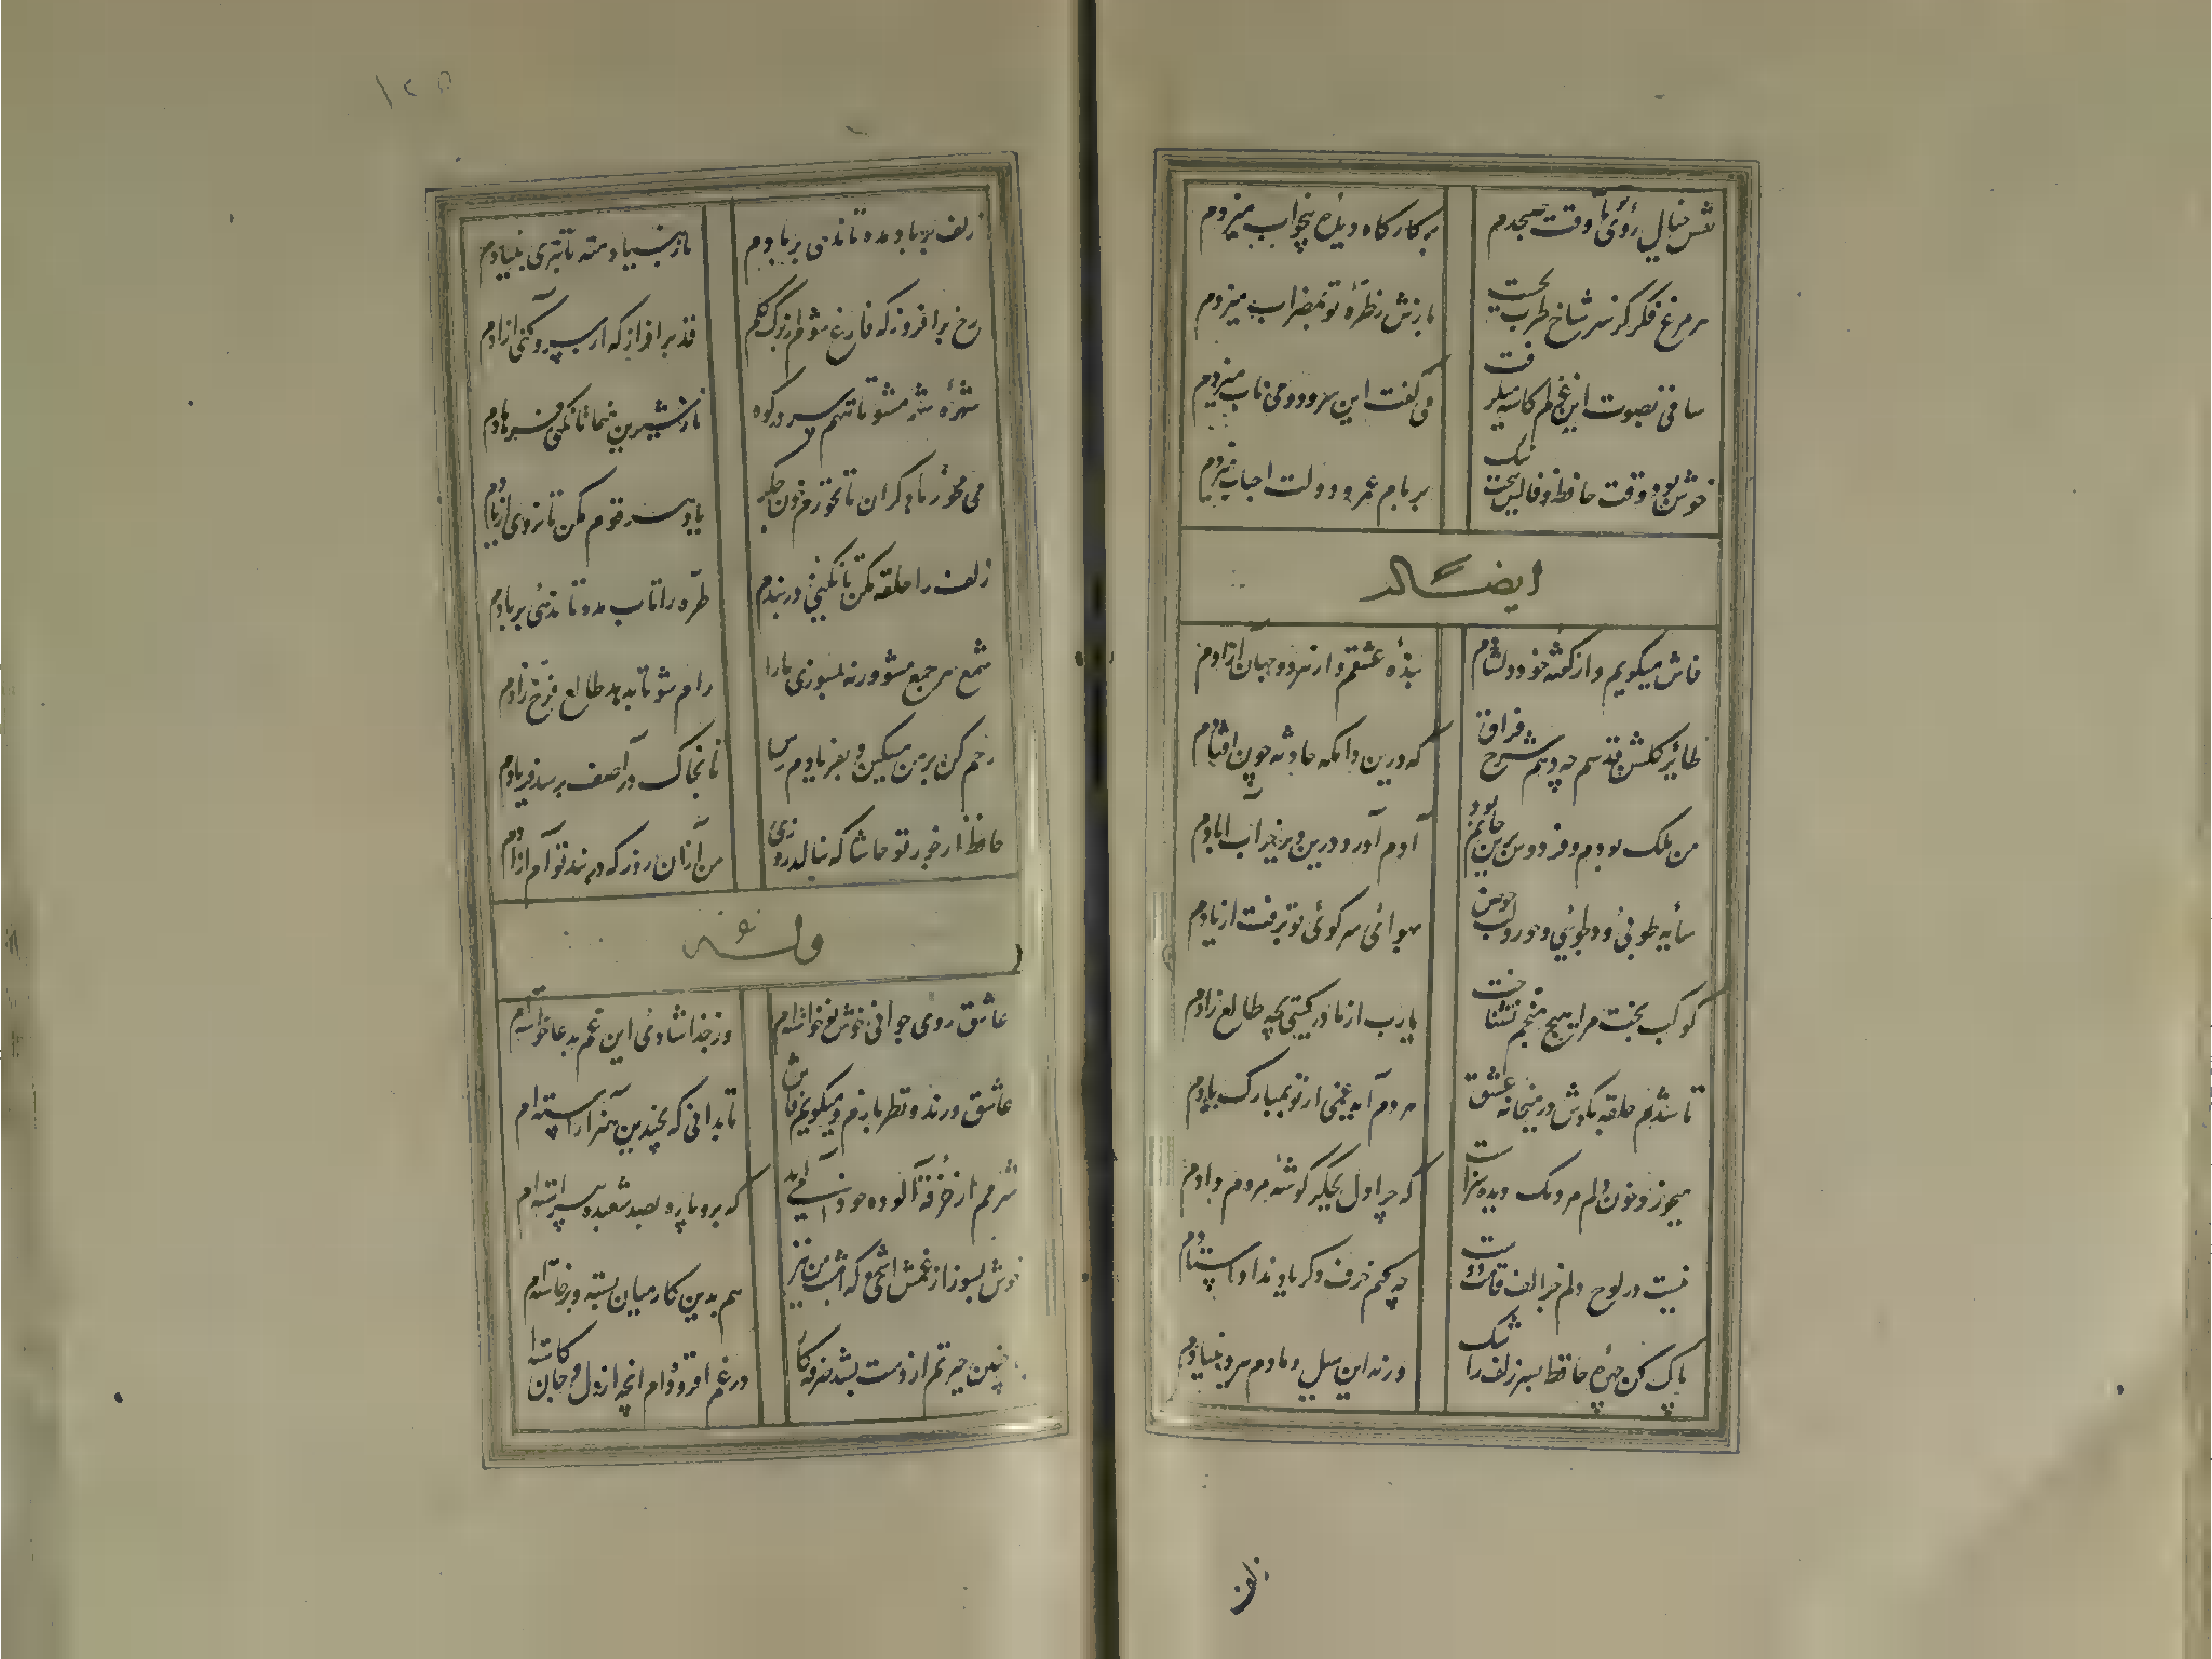 نقش خیال روی تا وقت صبحدم بر کارگاه دیده بیخواب میزدم
هر مرغ فکر کز سر شاخ طرب بجست بازش ز طره تو بمضراب میزدم
ساقی بصوت این غزلم کاسه میکرفت می گفت این سرود و می ناب میزدم
خوش بود وقت حافظ و فالش بخت نیک بر نام عمر و دولت احباب میزدم
ایضاً له
فاش میکویم و از کفته خود دلشادم بنده عشقم و از هر دو جهان آزادم
طایر کلشن قدسم چه دهم شرح فراق که درین دامکه حادثه چون افتادم
من ملک بودم و فردوس برین جایم بود آدم آورد درین دیر خراب آبادم
سایه طوبی و دلجوئی حور و لب حوض بهوای سر کوی تو برفت از یادم
کوکب بخت مرا هیچ منجم نشناخت یارب از مادر کیتی بچه طالع زادم
تا شدم حلقه بکوش در میخانه عشق هر دم آید غمی از نو بمبارک بادم
میخورد خون دلم مردمک دیده سزاست که چرا دل بجکر کوشه مردم دادم
نیست در لوح دلم جز الف قامت دوست چه کنم حرف دکر یاد نداد استادم
پاک کن چهره حافظ بسر زلف ز اشک ورنه این سیل دمادم ببرد بنیادم
زلف
۱۲۵
زلف بر باد مده تا ندهی بر بادم ناز بنیاد منه تا نبری بنیادم
رخ برافروز که فارغ کنی از برک کلم قد برافراز که از سرو کنی آزادم
شهره شهر مشو تا ننهم سر در کوه ناز شیرین منما تا نکنی فرهادم
می مخور با دکران تا نخورم خون جکر یاد هر قوم مکن تا نروی از یادم
زلف را حلقه مکن تا نکنی در بندم طره را تاب مده تا ندهی بر بادم
شمع هر جمع مشو ورنه بسوزی ما را رام شو تا بدهد طالع فرخ زادم
رحم کن بر من مسکین و بفریادم رس تا بخاک در آصف نرسد فریادم
حافظ از جور تو حاشا که بنالد روزی من از آن روز که در بند توام آزادم
وله
عاشق روی جوانی خوش نوخواسته ام وز خدا شادی این غم بدعا خواسته ام
عاشق و رند و نظربازم و میکویم فاش تا بدانی که بچندین هنر آراسته ام
شرمم از خرقه آلوده خود می آید که برو پاره بصد شعبده پیراسته ام
خوش بسوز از غمش ای شمع که امشب من نیز هم بدین کار میان بسته و برخاسته ام
با چنین حیرتم از دست بشد صرفه کار در غم افزوده ام آنچه از دل و جان کاسته ام